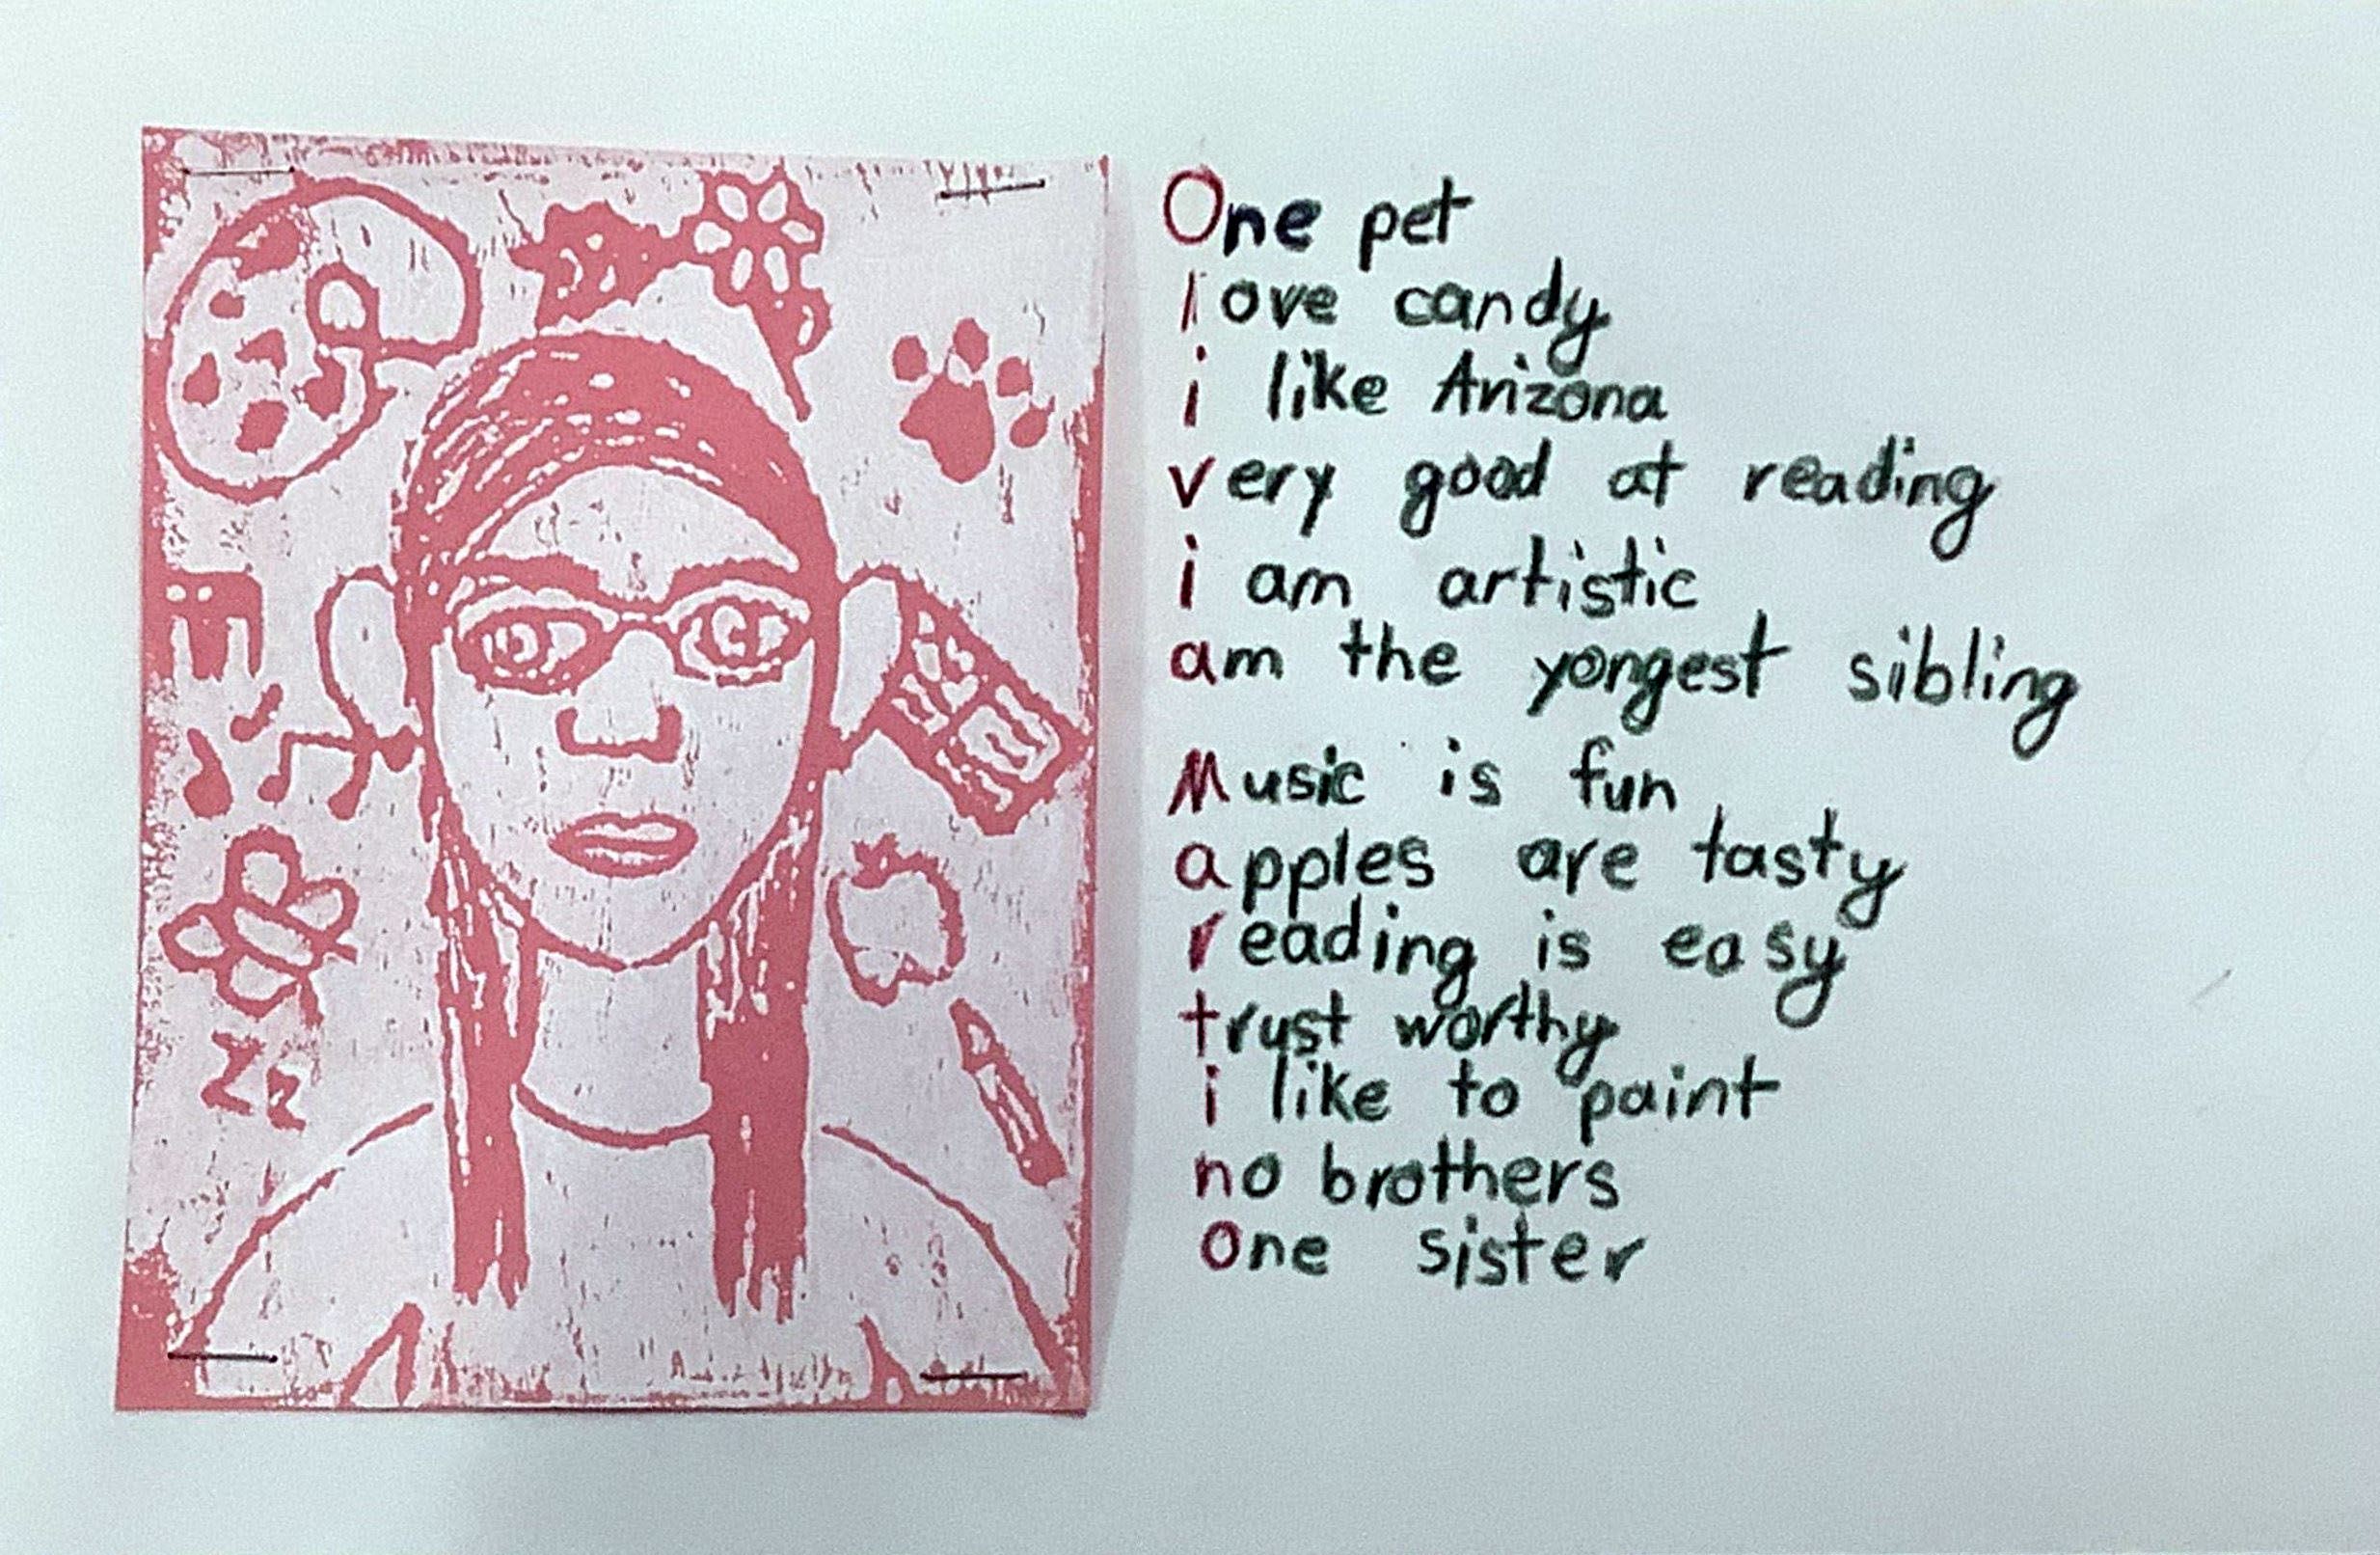 One pet
love candy
i like Arizona
very good at reading
i am artistic
am the yongest sibling
Music is fun
apples are tasty
reading is easy
trust worthy
i like to paint
no brothers
one sister
Zz